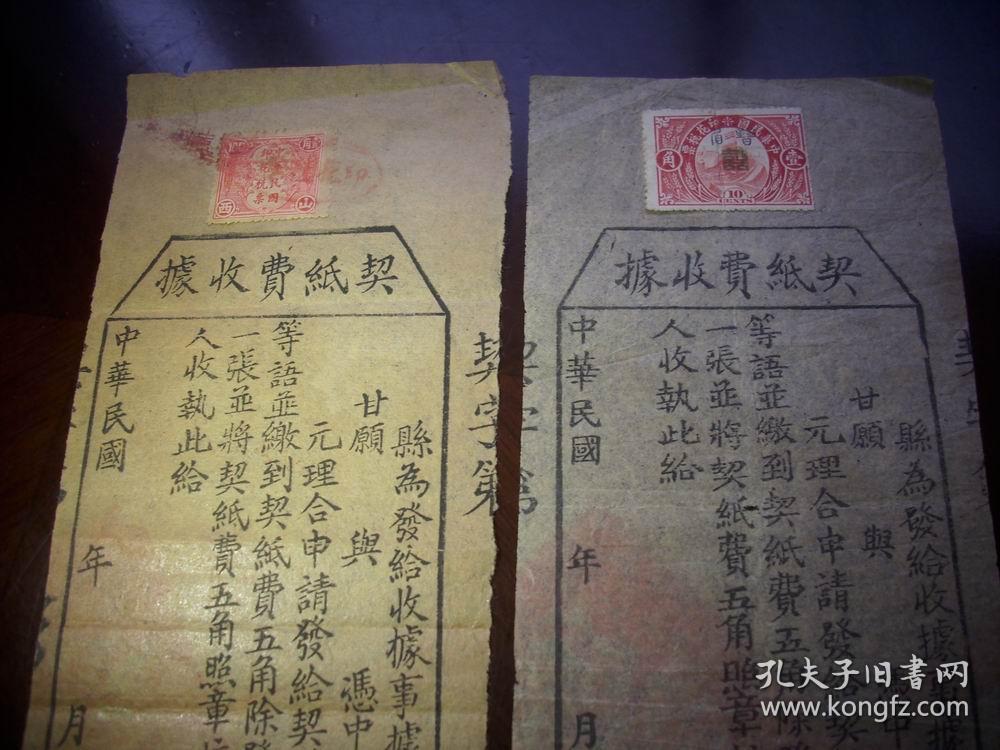 山西
契紙費收據
縣為發給收據事據
甘願 與 憑中
元理合申請發給契
等語並繳到契紙費五角除發
一張並將契紙費五角照章
人收執此給
中華民國 年 月
契字第
中華民國印花稅票
晉省
壹角
10
CENTS
契紙費收據
縣為發給收據事據
甘願 與
元理合申請發給契
等語並繳到契紙費五角除
一張並將契紙費五角照章
人收執此給
中華民國 年 月
契字第
孔夫子旧書网
www.kongfz.com